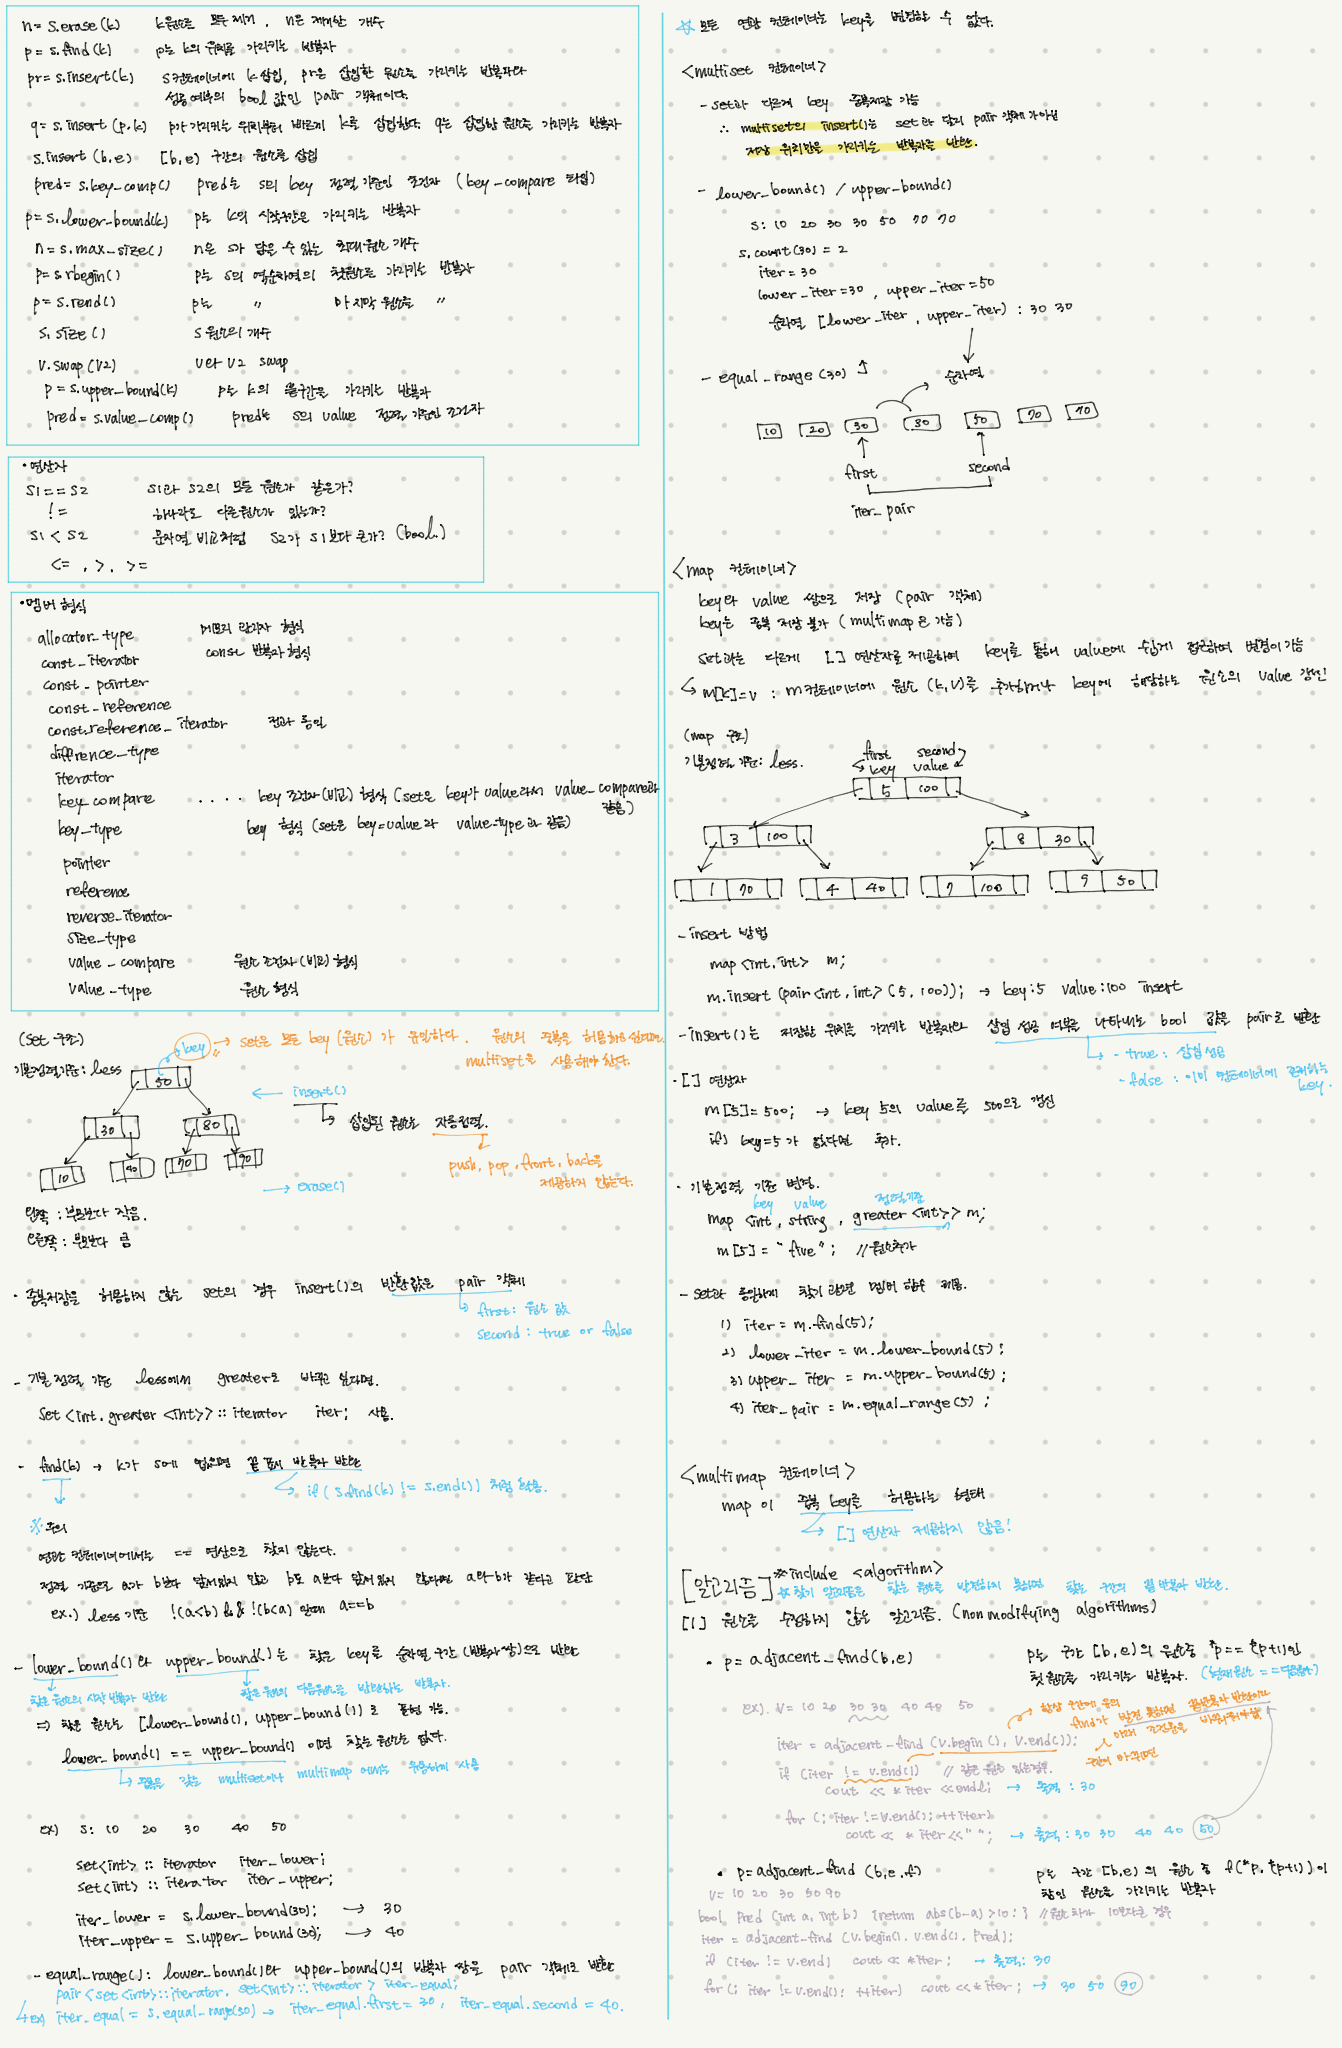 n = s.erase(k) k원소를 모두 제거, n은 제거한 개수
p = s.find(k) p는 k의 위치를 가리키는 반복자
pr = s.insert(k) s컨테이너에 k 삽입, pr은 삽입한 원소를 가리키는 반복자와
성공여부의 bool 값인 pair 객체이다.
q = s.insert(p,k) p가 가리키는 위치부터 빠르게 k를 삽입한다. q는 삽입한 원소를 가리키는 반복자
s.insert(b,e) [b,e) 구간의 원소를 삽입
pred = s.key_comp() pred는 s의 key 정렬 기준인 조건자 (key_compare 타입)
p = s.lower_bound(k) p는 k의 시작구간을 가리키는 반복자
n = s.max_size() n은 s가 담을 수 있는 최대 원소 개수
p = s.rbegin() p는 s의 역순차열의 첫원소를 가리키는 반복자
p = s.rend() p는 〃 마지막 원소를 〃
s.size() s 원소의 개수
v.swap(v2) v와 v2 swap
p = s.upper_bound(k) p는 k의 끝구간을 가리키는 반복자
pred = s.value_comp() pred는 s의 value 정렬 기준인 조건자
• 연산자
s1 == s2 s1과 s2의 모든 원소가 같은가?
!= 하나라도 다른원소가 있는가?
s1 < s2 문자열 비교처럼 s2가 s1보다 큰가? (bool.)
<= , >, >=
• 멤버 형식
allocator_type 메모리 할당자 형식
const_iterator const 반복자 형식
const_pointer
const_reference
const_reference_iterator 전과 동일
diffrence_type
iterator
key_compare .... key 조건자(비교) 형식 (set은 key가 value라서 value_compare와 같음)
key_type key 형식 (set은 key=value라 value_type과 같음)
pointer
reference
reverse_iterator
size_type
value_compare 원소 조건자(비교) 형식
value_type 원소 형식
(set 구조)
key → set은 모든 key(원소)가 유일하다. 원소의 중복을 허용하고 싶다면 multiset을 사용해야 한다.
기본정렬기준: less
50
← insert()
↳ 삽입된 원소는 자동정렬.
30 80
push, pop, front, back을 제공하지 않는다.
10 40 70 90
→ erase()
왼쪽 : 부모보다 작음.
오른쪽 : 부모보다 큼
• 중복저장을 허용하지 않는 set의 경우 insert()의 반환값은 pair 객체
↳ first: 원소 값
second : true or false
- 기본 정렬 기준 less에서 greater로 바꾸고 싶다면.
set <int, greater <int>> :: iterator iter; 사용.
- find(k) → k가 s에 없으면 끝 표시 반복자 반환
↳ if( s.find(k) != s.end() ) 처럼 활용.
※주의
연관 컨테이너에서는 == 연산으로 찾지 않는다.
정렬 기준으로 a가 b보다 앞서있지 않고 b도 a보다 앞서 있지 않다면 a와 b가 같다고 판단
ex.) less 기준 !(a<b) && !(b<a) 일때 a==b
- lower_bound()와 upper_bound()는 찾은 key를 순차열 구간(반복자 쌍)으로 반환
찾은 원소의 시작 반복자 반환
찾은 원소의 다음원소를 반환하는 반복자.
⇒ 찾은 원소는 [lower_bound(), upper_bound()) 로 표현 가능.
lower_bound() == upper_bound() 이면 찾는 원소는 없다.
↳ 중복을 갖는 multiset이나 multimap 에서는 유용하게 사용
ex) s: 10 20 30 40 50
set<int> :: iterator iter_lower;
set<int> :: iterator iter_upper;
iter_lower = s.lower_bound(30); → 30
iter_upper = s.upper_bound(30); → 40
- equal_range() : lower_bound()와 upper_bound()의 반복자 쌍을 pair 객체로 반환
pair < set<int>::iterator, set<int>::iterator > iter_equal;
↳ ex) iter_equal = s.equal_range(30) → iter_equal.first = 30, iter_equal.second = 40.
☆ 모든 연관 컨테이너는 key를 변경할 수 없다.
<multiset 컨테이너>
- set과 다르게 key 중복저장 가능
∴ multiset의 insert()는 set과 달리 pair 객체가 아닌
저장 위치만을 가리키는 반복자를 반환.
- lower_bound() / upper_bound()
s: 10 20 30 30 50 70 70
s.count(30) = 2
iter = 30
lower_iter = 30, upper_iter = 50
순차열 [lower_iter, upper_iter) : 30 30
- equal_range(30) 순차열
10 20 30 30 50 70 70
first second
iter_pair
<map 컨테이너>
key와 value 쌍으로 저장 (pair 객체)
key는 중복 저장 불가 (multimap은 가능)
set과는 다르게 [ ] 연산자를 제공하여 key를 통해 value에 쉽게 접근하여 변경이 가능
↳ m[k]=v : m컨테이너에 원소 (k,v)를 추가하거나 key에 해당하는 원소의 value 갱신
(map 구조)
기본정렬 기준: less.
first second
key value
5 100
3 100 8 30
1 70 4 40 7 100 9 50
- insert 방법
map <int, int> m;
m.insert (pair<int, int> (5, 100)); → key:5 value:100 insert
- insert()는 저장한 위치를 가리키는 반복자와 삽입 성공 여부를 나타내는 bool 값을 pair로 반환
- true : 삽입 성공
- false : 이미 컨테이너에 존재하는 key.
• [ ] 연산자
m[5] = 500; → key 5의 value를 500으로 갱신
if) key=5 가 없다면 추가.
• 기본정렬 기준 변경.
key value 정렬기준
map <int, string, greater <int>> m;
m[5] = "five"; // 원소추가
- set과 동일하게 찾기 관련 멤버 함수 제공.
1) iter = m.find(5);
2) lower_iter = m.lower_bound(5);
3) upper_iter = m.upper_bound(5);
4) iter_pair = m.equal_range(5);
<multimap 컨테이너>
map 이 중복 key를 허용하는 형태
↳ [ ] 연산자 제공하지 않음!
[알고리즘] #include <algorithm>
※ 찾기 알고리즘은 찾는 원소를 발견하지 못하면 찾는 구간의 끝 반복자 반환.
[1] 원소를 수정하지 않는 알고리즘. (non modifying algorithms)
• p = adjacent_find(b,e) p는 구간 [b,e)의 원소중 *p == *(p+1)인
첫원소를 가리키는 반복자. (현재원소 == 다음원소)
ex). v= 10 20 30 30 40 40 50
항상 구간에 유의
find가 발견 못하면 끝반복자 반환이라
iter = adjacent_find (v.begin(), v.end());
if (iter != v.end()) // 같은 원소 있는경우.
cout << *iter << endl; → 출력 : 30
for (; iter != v.end(); ++iter)
cout << *iter << " "; → 출력 : 30 30 40 40 50
• p = adjacent_find (b,e,f) p는 구간 [b,e) 의 원소 중 f(*p, *(p+1))이
참인 원소를 가리키는 반복자
v= 10 20 30 50 90
bool Pred (int a, int b) {return abs(b-a) >10; } // 원소차가 10보다클 경우
iter = adjacent_find (v.begin(), v.end(), Pred);
if (iter != v.end) cout << *iter; → 출력: 30
for(; iter != v.end(); ++iter) cout << *iter; → 30 50 90